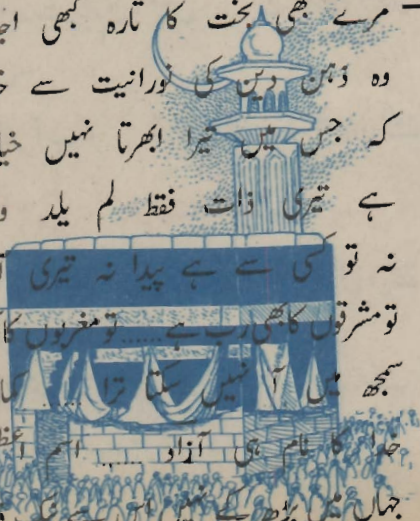 مرے بھی بخت کا تارہ کبھی
وہ ذہن دین کی نورانیت سے
کہ جس میں تیرا ابھرتا نہیں
ہے تیری ذات فقط لم یلد و
نہ تو کسی سے ہے پیدا نہ تیری
تو مشرقوں کا بھی رب ہے ...... تو مغربوں کا
سمجھ میں آ نہیں سکتا ترا ......
خدا کا نام ہی آزاد ...... اسم
جہاں میں